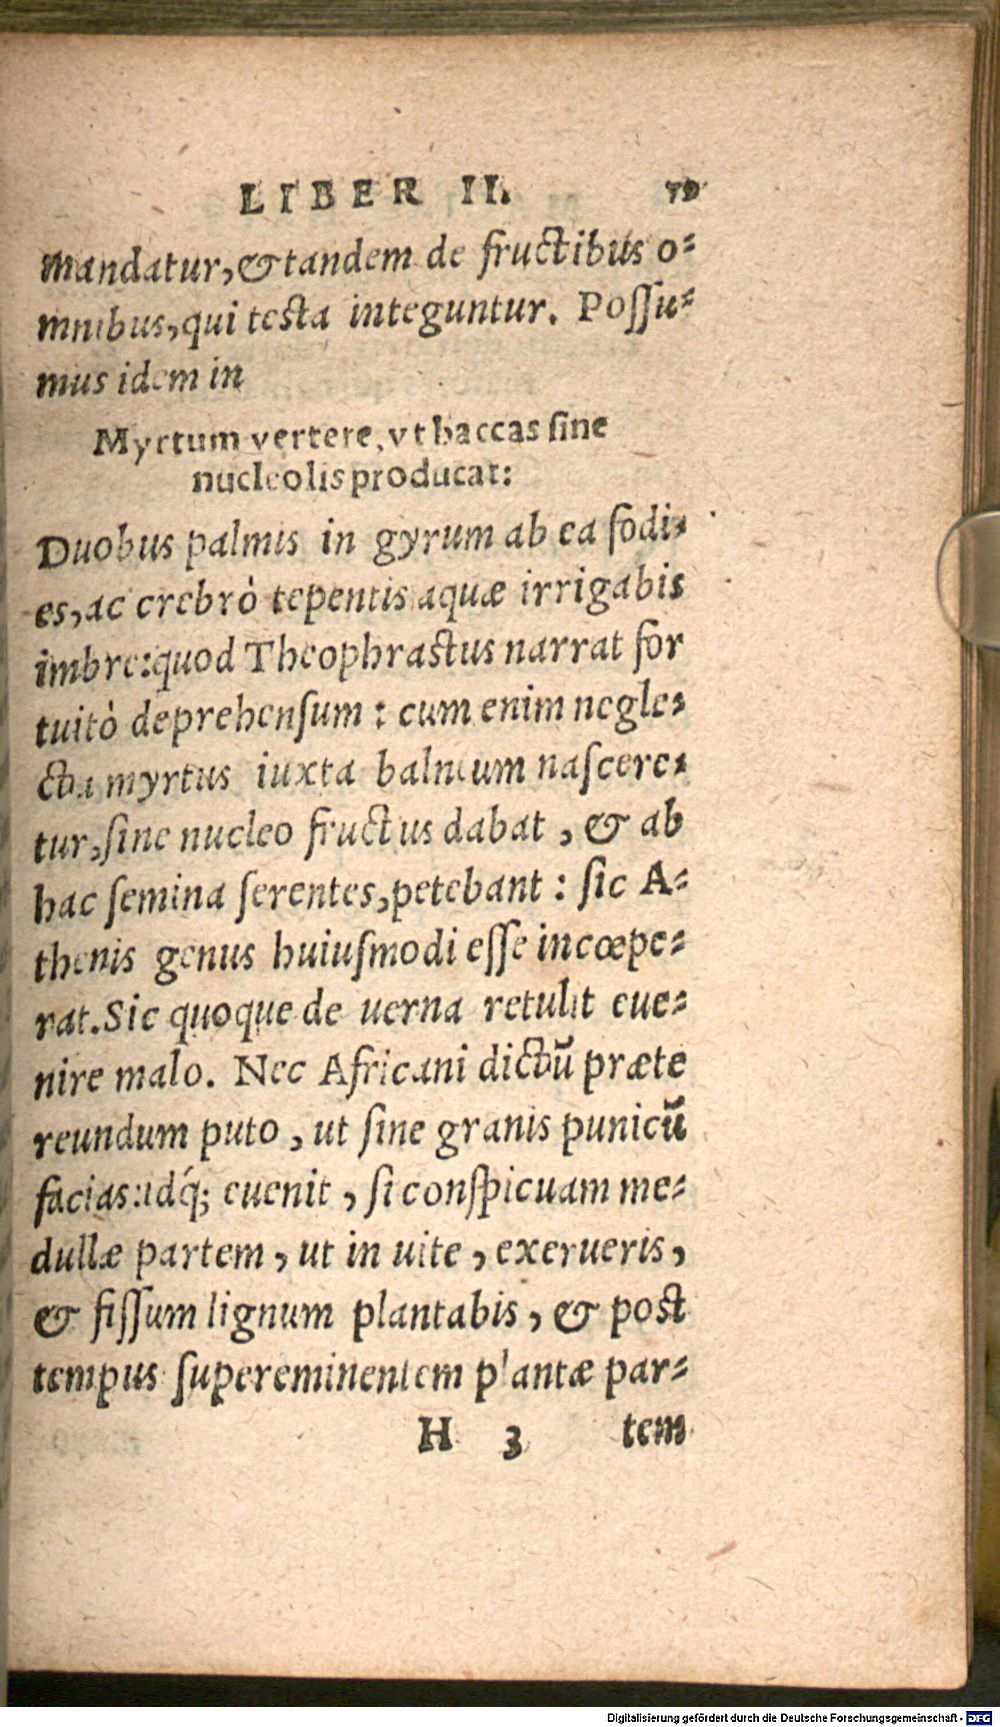 LIBER II. 59
mandatur, & tandem de fructibus o-
mnibus, qui testa integuntur. Possu-
mus idem in
Myrtum vertere, vt baccas sine
nucleolis producat:
Duobus palmis in gyrum ab ea fodi-
es, ac crebrò tepentis aquæ irrigabis
imbre: quod Theophrastus narrat for
tuitò deprehensum: cum enim negle-
cta myrtus iuxta balneum nascere-
tur, sine nucleo fructus dabat, & ab
hac semina serentes, petebant: sic A-
thenis genus huiusmodi esse incœpe-
rat. Sic quoque de uerna retulit eue-
nire malo. Nec Africani dictū præte
reundum puto, ut sine granis punicū
facias: idq́; euenit, si conspicuam me-
dullæ partem, ut in uite, exerueris,
& fissum lignum plantabis, & post
tempus supereminentem plantæ par-
H 3 tem
Digitalisierung gefördert durch die Deutsche Forschungsgemeinschaft - DFG